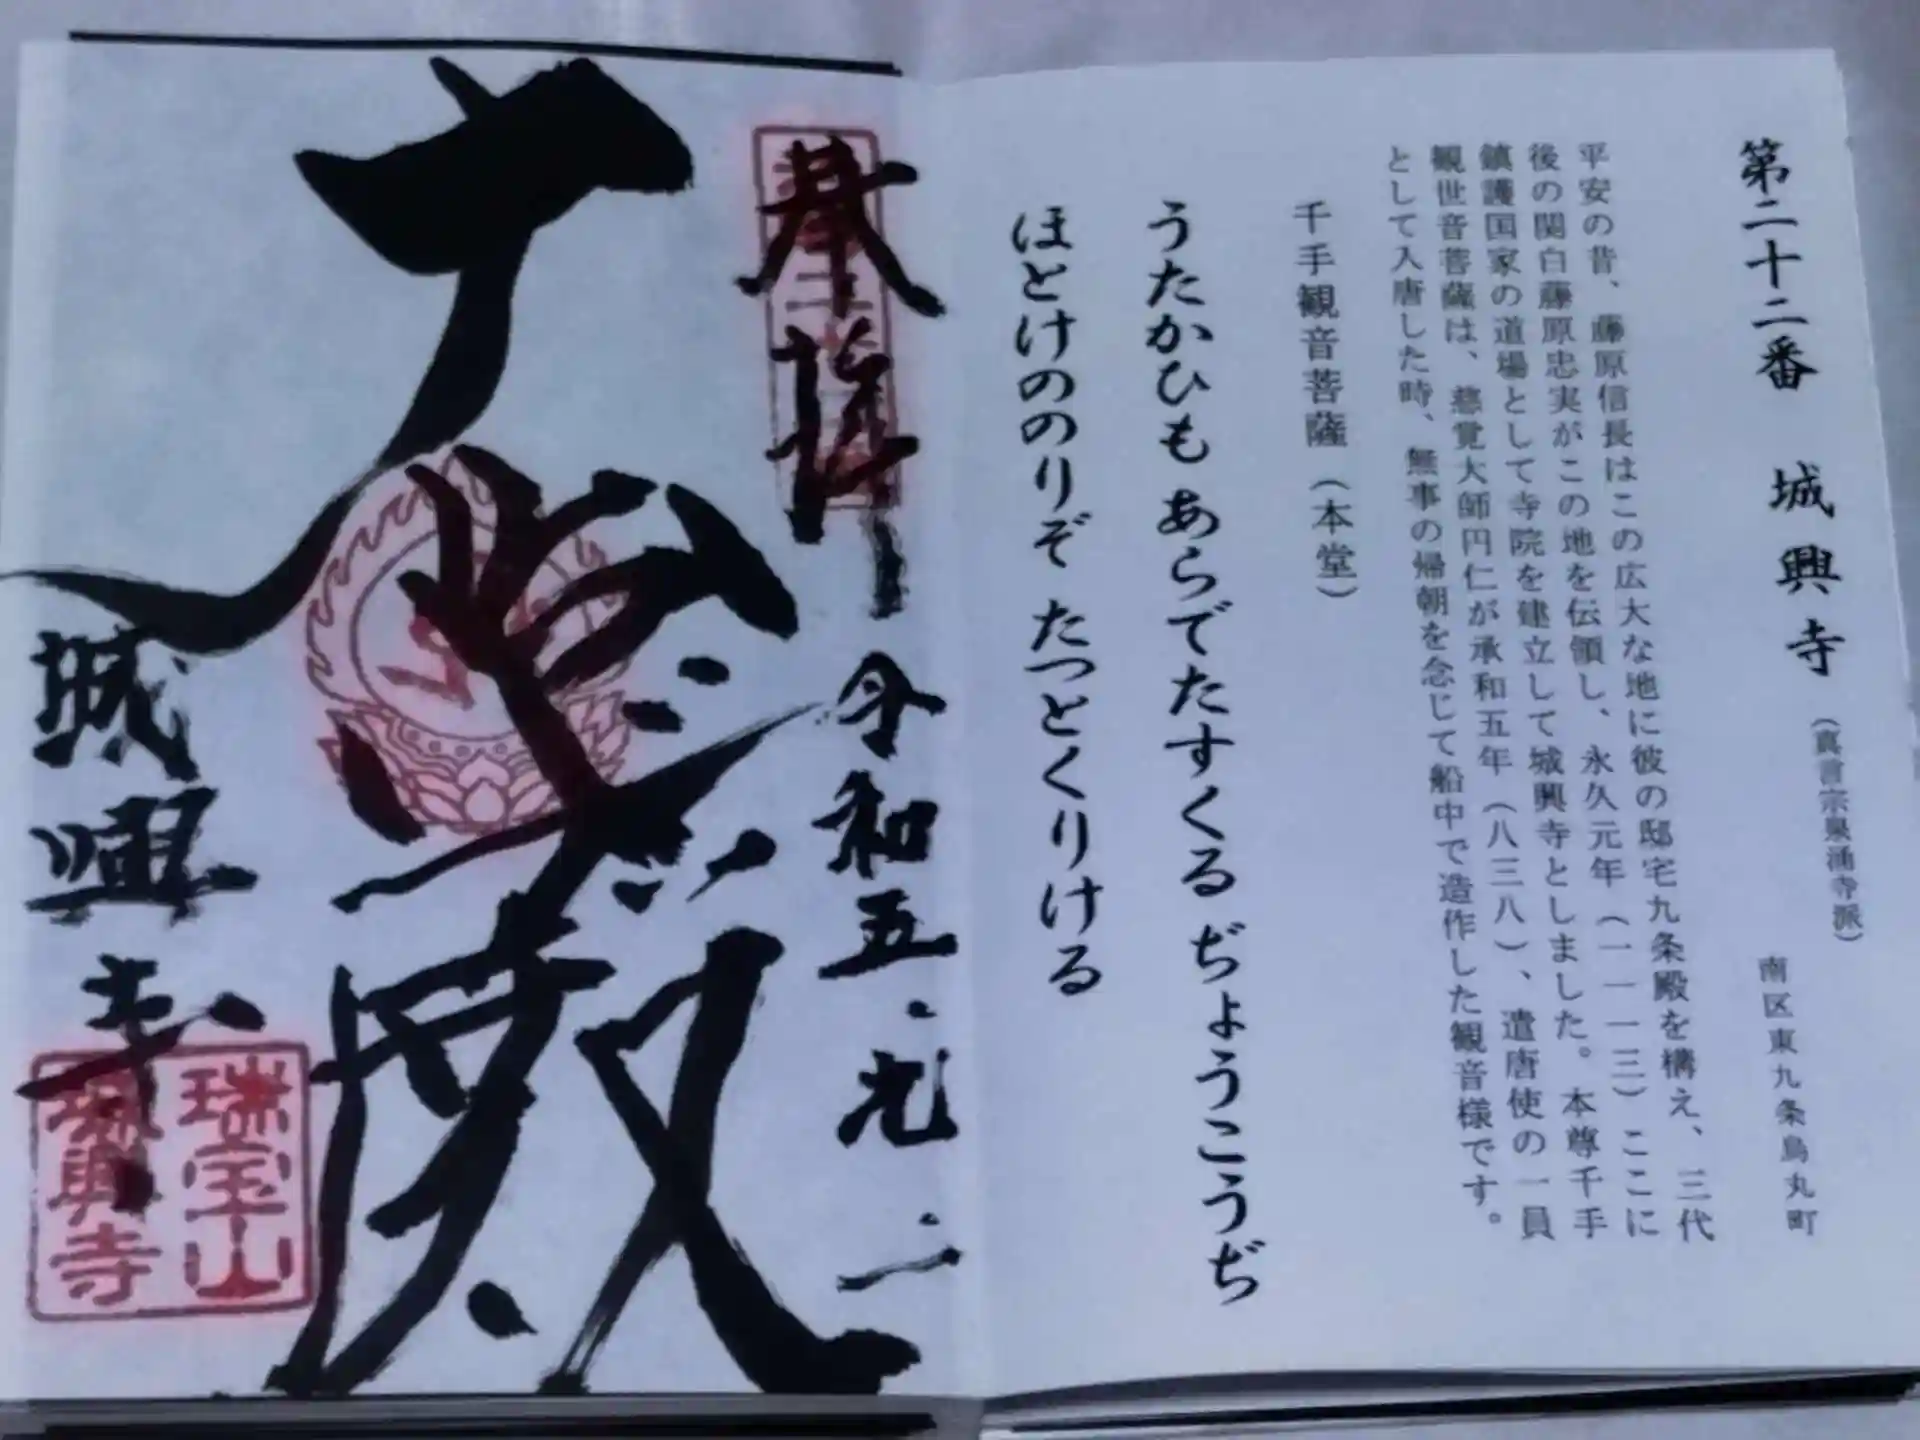 第二十二番 城興寺 (真言宗泉涌寺派) 南区東九条烏丸町
平安の昔、藤原信長はこの広大な地に彼の邸宅九条殿を構え、三代
後の関白藤原忠実がこの地を伝領し、永久元年(一一一三)ここに
鎮護国家の道場として寺院を建立して城興寺としました。本尊千手
観世音菩薩は、慈覚大師円仁が承和五年(八三八)、遣唐使の一員
として入唐した時、無事の帰朝を念じて船中で造作した観音様です。
千手観音菩薩(本堂)
うたかひも あらでたすくる ぢょうこうぢ
ほとけののりぞ たつとくりける
奉拝
令和五・九・二
大悲殿
城興寺
瑞宝山
城興寺